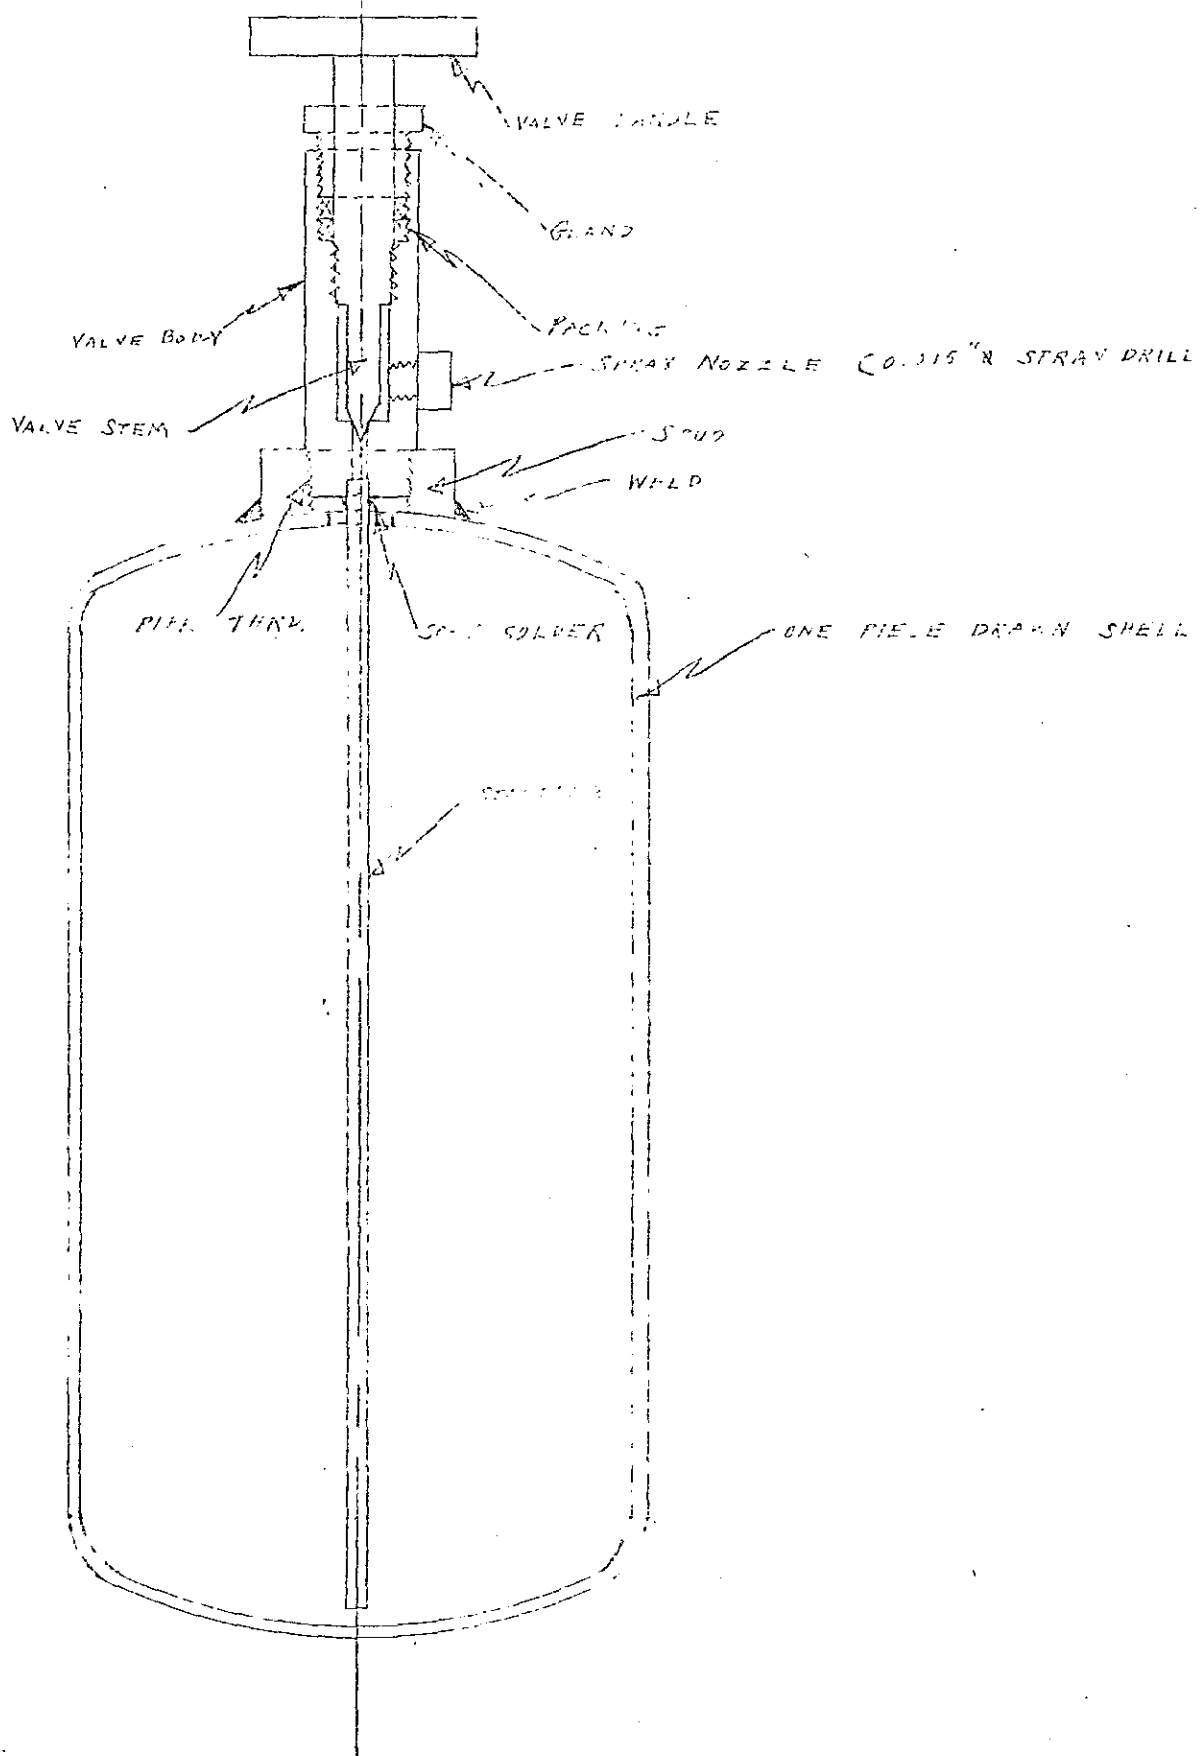 VALVE HANDLE
GLAND
PACKING
VALVE BODY
SPRAY NOZZLE
VALVE STEM
SPUD
WELD
PIPE THRD.
SOLDER
ONE PIECE DRAWN SHELL